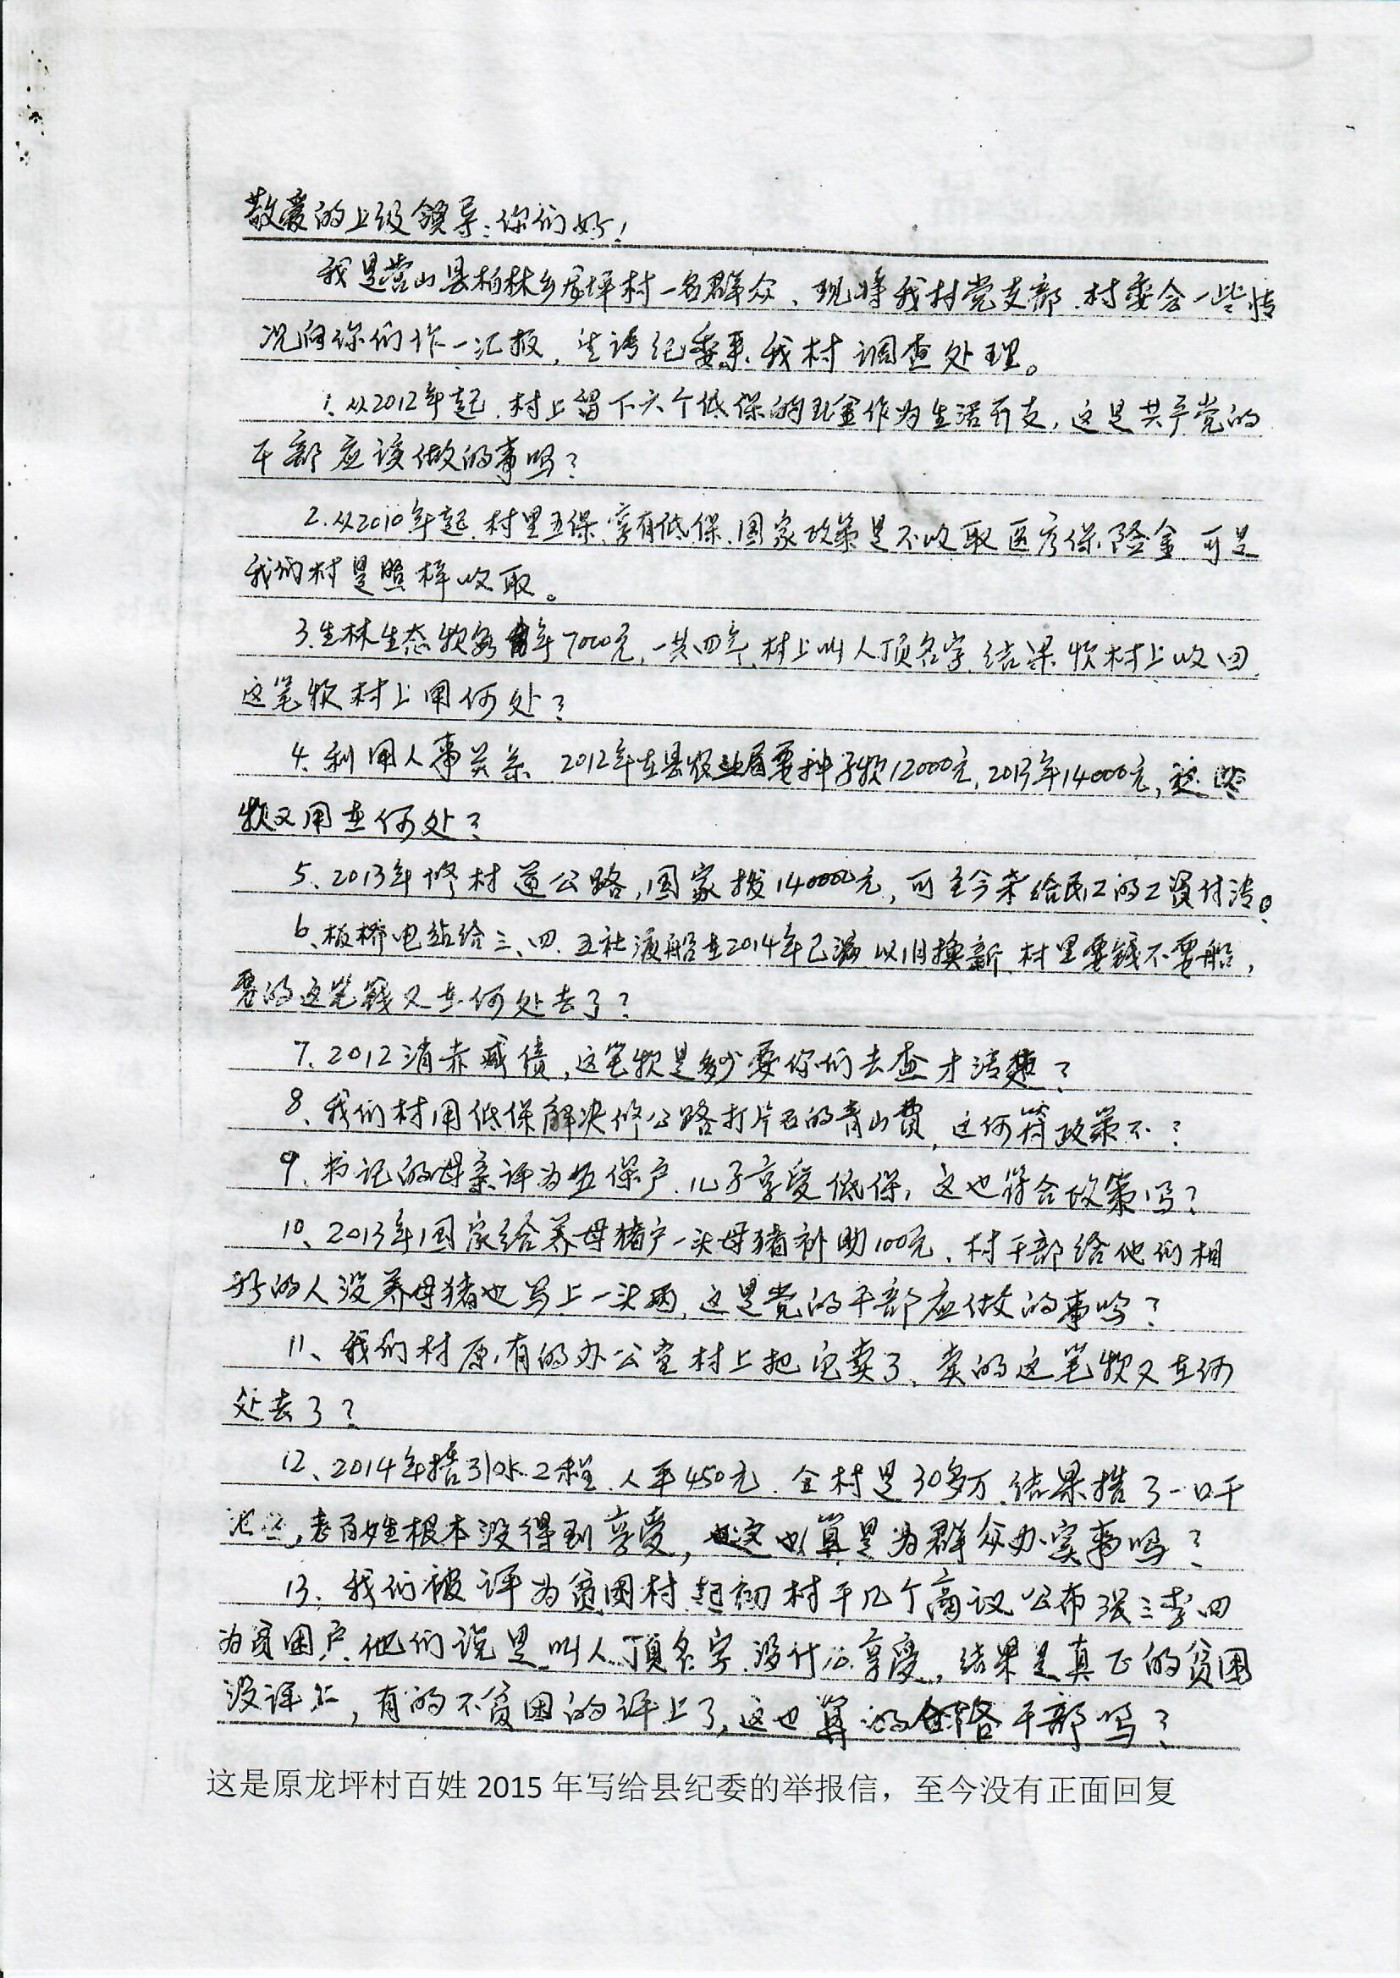 敬爱的上级领导：你们好！
我是营山县柏林乡龙坪村一名群众、现将我村党支部、村委会一些情
况向你们作一汇报，先请纪委来我村调查处理。
1、从2012年起，村上留下六个低保的现金作为生活开支，这是共产党的
干部应该做的事吗？
2、从2010年起，村里五保、享有低保，国家政策是不收取医疗保险金，可是
我们村是照样收取。
3、生林生态款每年7000元，一共四年，村上叫人顶名字，结果款村上收回，
这笔款村上用何处？
4、利用人事关系，2012年在县农业局要种子款12000元，2013年14000元，这些
款又用在何处？
5、2013年修村道公路，国家拨140000元，可至今未给民工的工资付清。
6、板桥电站给三、四、五社渡船在2014年已满以旧换新，村里要钱不要船，
要的这笔钱又在何处去了？
7、2012消赤减债，这笔款是多少要你们去查才清楚？
8、我们村用低保解决修公路打片石的青山费，这何符政策不？
9、书记的母亲评为五保户、儿子享受低保，这也符合政策吗？
10、2013年国家给养母猪户一头母猪补助100元，村干部给他们相
好的人没养母猪也写上一头两，这是党的干部应做的事吗？
11、我们村原有的办公室村上把它卖了，卖的这笔款又在何
处去了？
12、2014年搞引水工程，人平450元，全村是30多万，结果搞了一口干
，老百姓根本没得到享受，这也算是为群众办实事吗？
13、我们被评为贫困村，起初村干几个商议公布张三李四
为贫困户，他们说是叫人顶名字，没什么享受，结果是真正的贫困
没评上，有的不贫困的评上了，这也算的合格干部吗？
这是原龙坪村百姓 2015 年写给县纪委的举报信，至今没有正面回复